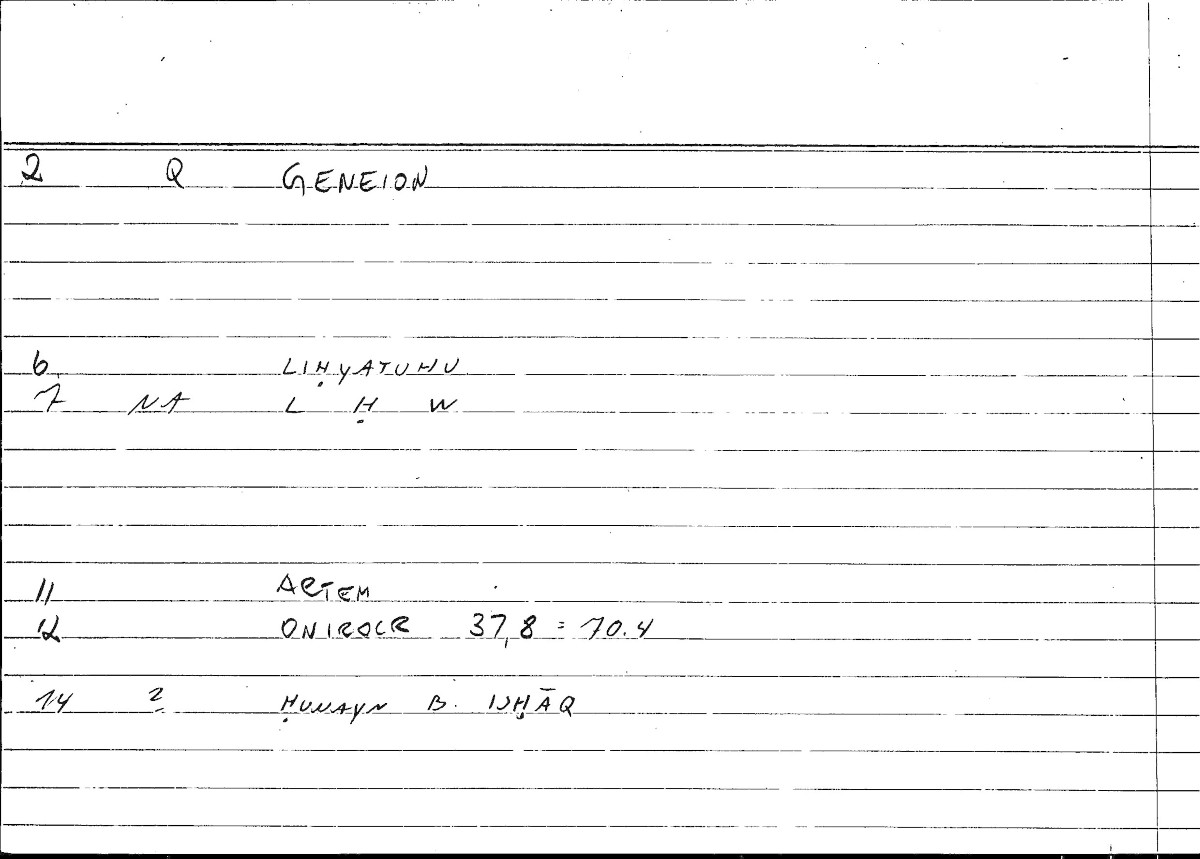 2 Q GENEION
6 LIḤYATUHU
7 NA L Ḥ W
11 ARTEM
12 ONIROCR 37,8 = 70.4
14 2 ḤUNAYN B. ISḤĀQ